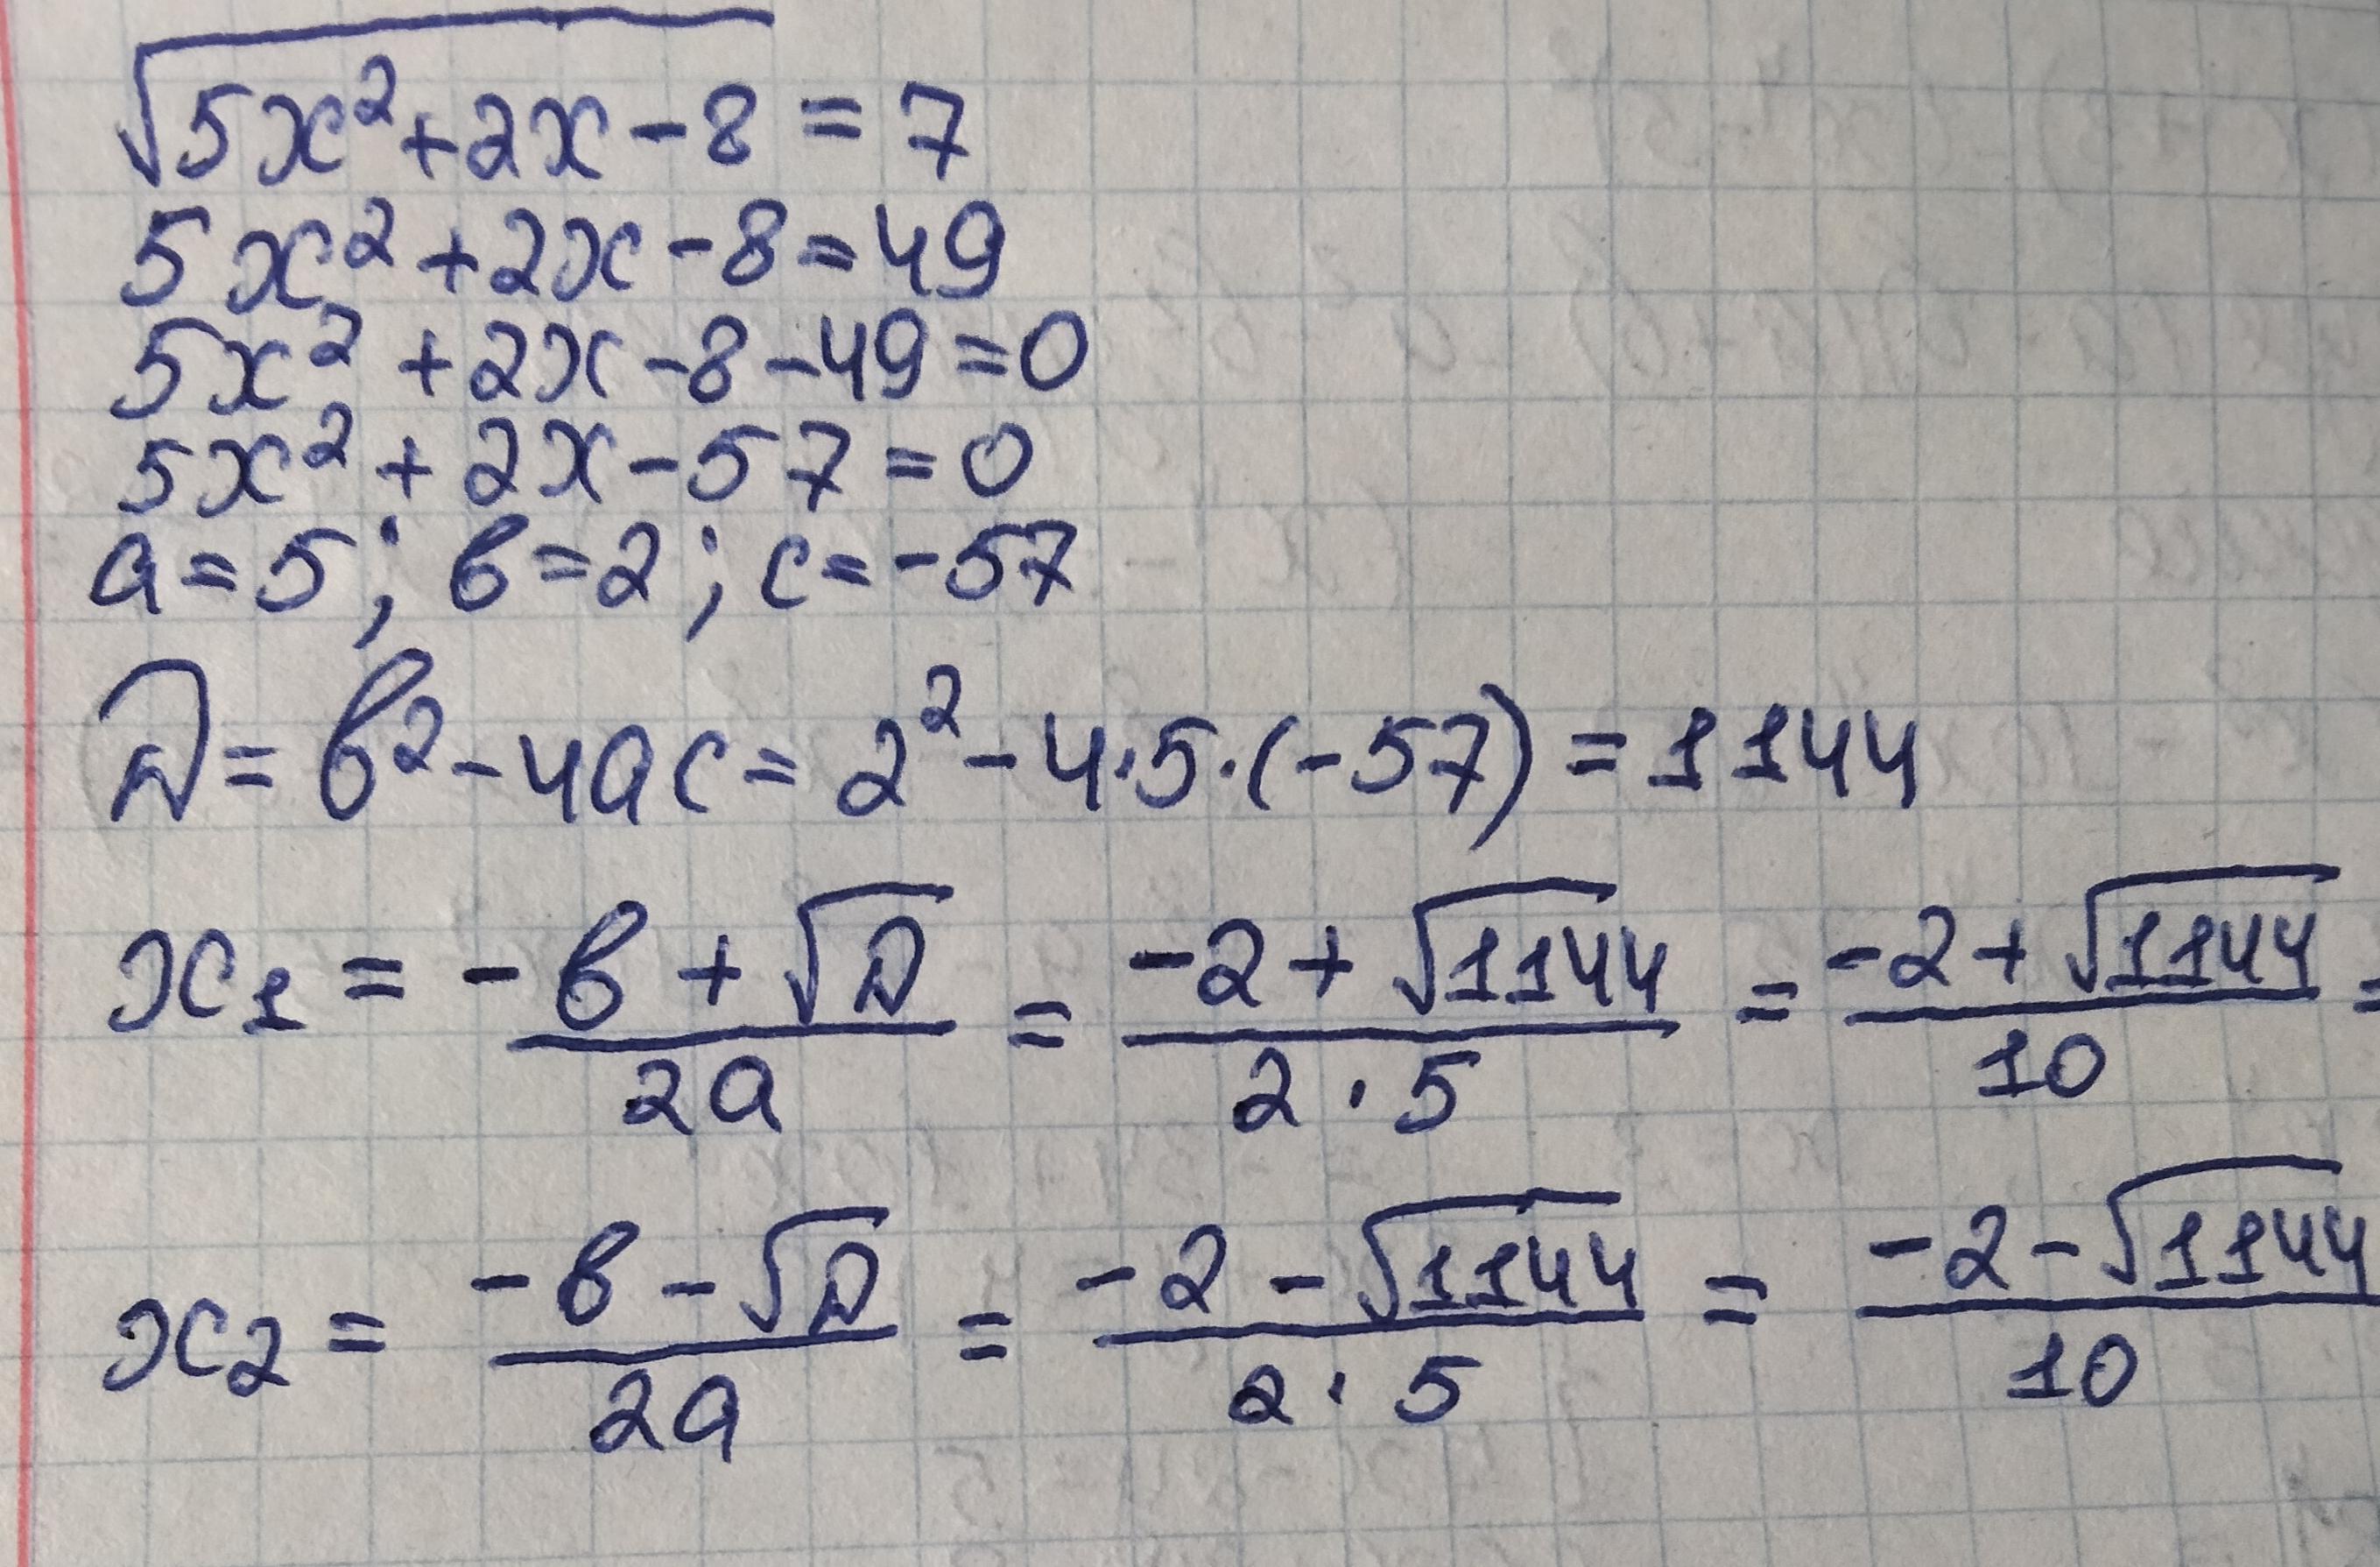 √5x²+2x-8 = 7
5x²+2x-8=49
5x²+2x-8-49=0
5x²+2x-57=0
a=5; в=2; c=-57
Д=в²-4ac=2²-4·5·(-57)=1144
x₁ = (-в+√Д)/2a = (-2+√1144)/2·5 = (-2+√1144)/10 =
x₂ = (-в-√Д)/2a = (-2-√1144)/2·5 = (-2-√1144)/10